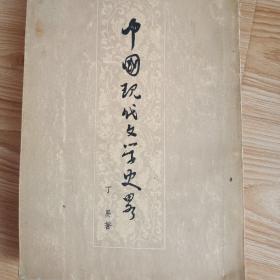 中國現代文学史畧
丁易著